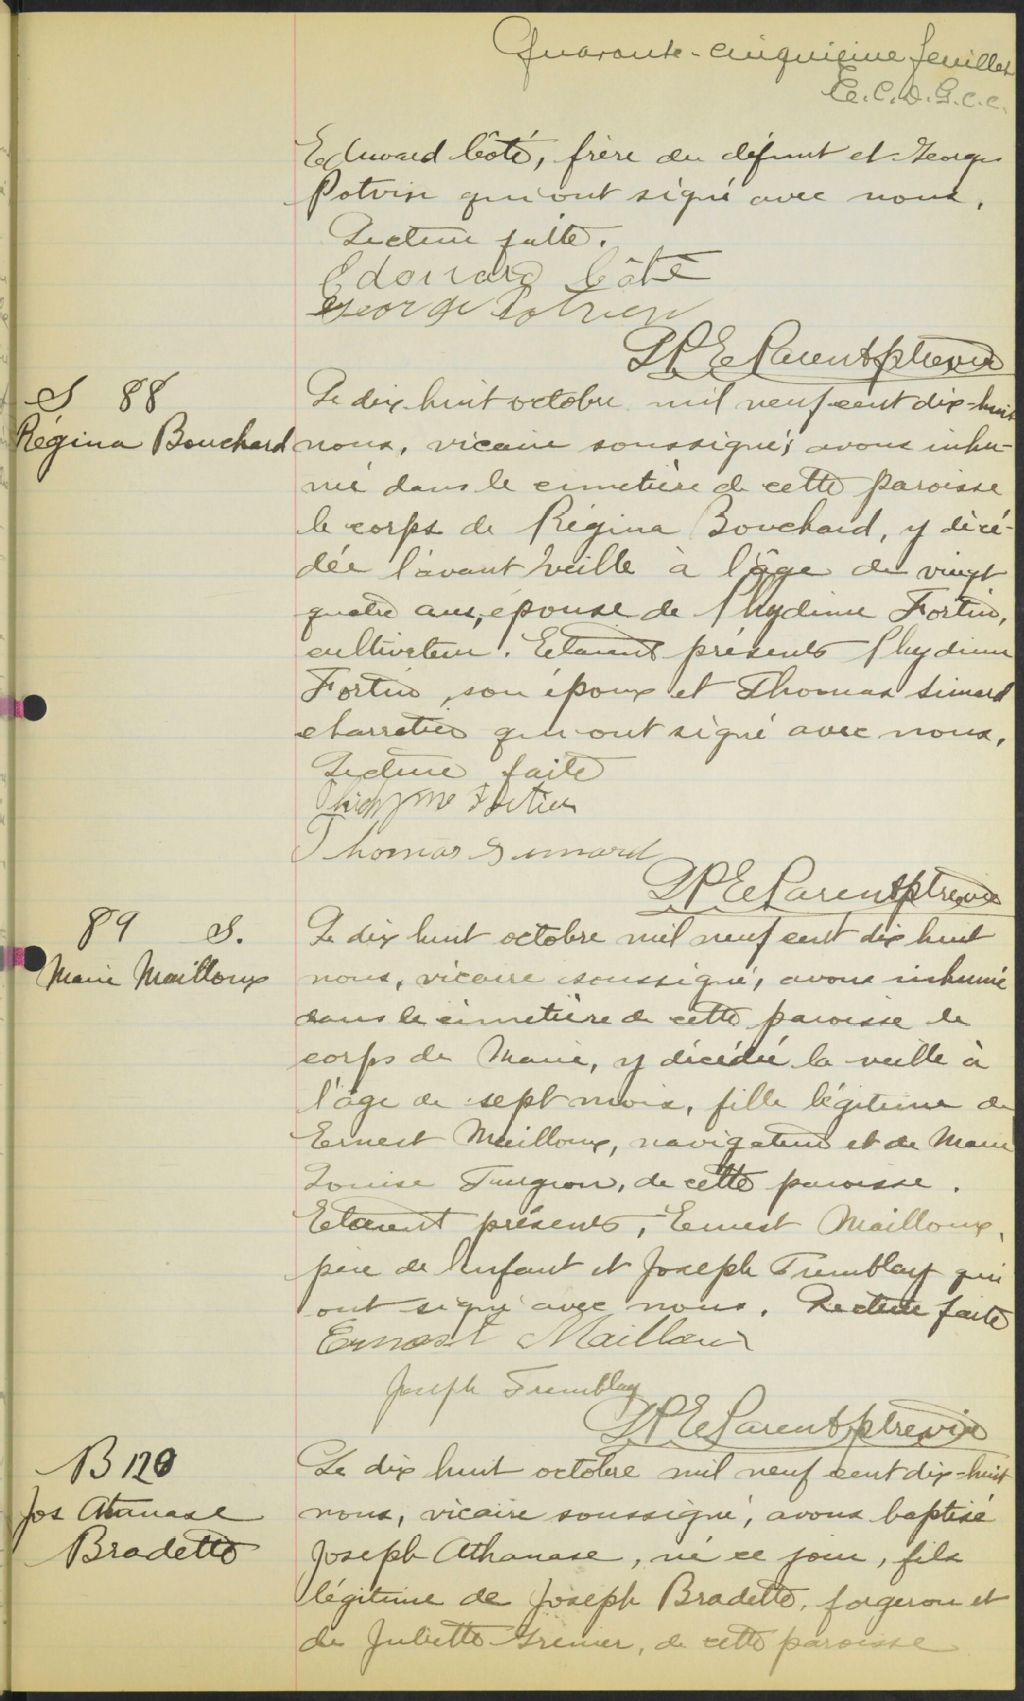 Quarante-cinquième feuillet
E.C.D.G.c.c.
Edouard Côté, frère du défunt et George
Potvin qui ont signé avec nous.
Lecture faite.
Edouard Côté
George Potvin
J.P.E. Parent ptre vic
S 88
Régina Bouchard
Le dix huit octobre mil neuf cent dix-huit
nous, vicaire soussigné, avons inhu-
mé dans le cimetière de cette paroisse
le corps de Régina Bouchard, y décé-
dée l'avant veille à l'âge de vingt
quatre ans, épouse de Phydime Fortin,
cultivateur. Etaient présents Phydime
Fortin, son époux et Thomas Simard
charretier qui ont signé avec nous.
Lecture faite
Fortin
Thomas Simard
J.P.E. Parent ptre vic
89 S.
Marie Mailloux
Le dix huit octobre mil neuf cent dix huit
nous, vicaire soussigné, avons inhumé
dans le cimetière de cette paroisse le
corps de Marie, y décédée la veille à
l'âge de sept mois, fille légitime de
Ernest Mailloux, navigateur et de Marie
Louise Turgeon, de cette paroisse.
Etaient présents, Ernest Mailloux,
père de l'enfant et Joseph Tremblay qui
ont signé avec nous. Lecture faite
Ernest Mailloux
Joseph Tremblay
J.P.E. Parent ptre vic
B 120
Jos Athanase
Bradette
Le dix huit octobre mil neuf cent dix-huit
nous, vicaire soussigné, avons baptisé
Joseph Athanase, né ce jour, fils
légitime de Joseph Bradette, forgeron et
de Juliette Grenier, de cette paroisse